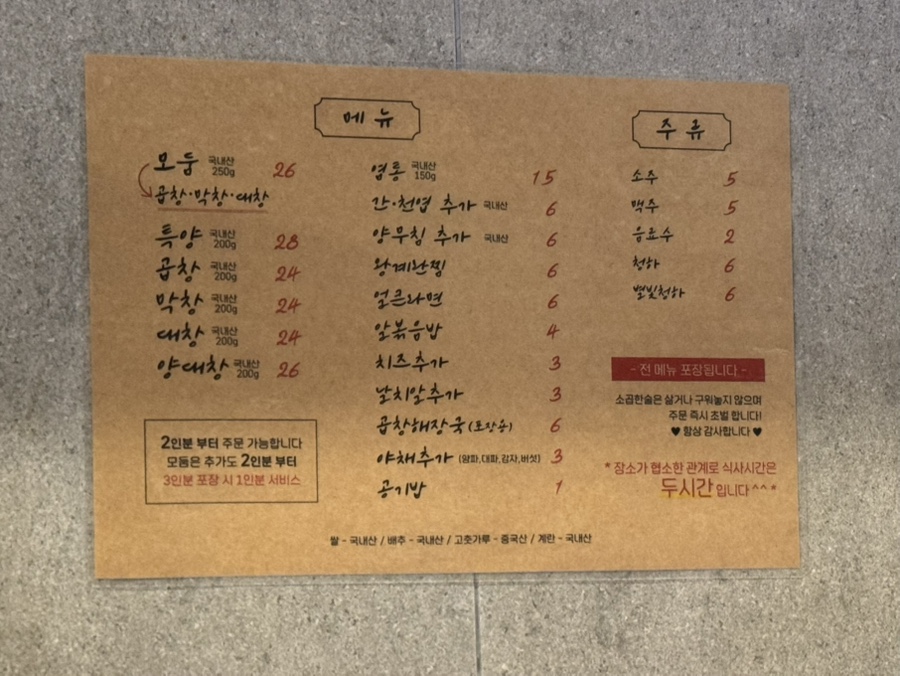 메뉴
모둠 국내산 250g 26
곱창·막창·대창
특양 국내산 200g 28
곱창 국내산 200g 24
막창 국내산 200g 24
대창 국내산 200g 24
양대창 국내산 200g 26
2인분 부터 주문 가능합니다
모듬은 추가도 2인분 부터
3인분 포장 시 1인분 서비스
염통 국내산 150g 15
간·천엽 추가 국내산 6
양무침 추가 국내산 6
왕계란찜 6
얼큰라면 6
알볶음밥 4
치즈추가 3
날치알추가 3
곱창해장국(포장용) 6
야채추가 (양파,대파,감자,버섯) 3
공기밥 1
주류
소주 5
맥주 5
음료수 2
청하 6
별빛청하 6
- 전 메뉴 포장됩니다 -
소곱한술은 삶거나 구워놓지 않으며
주문 즉시 초벌 합니다!
♥ 항상 감사합니다 ♥
* 장소가 협소한 관계로 식사시간은
두시간 입니다 ^^ *
쌀 - 국내산 / 배추 - 국내산 / 고춧가루 - 중국산 / 계란 - 국내산